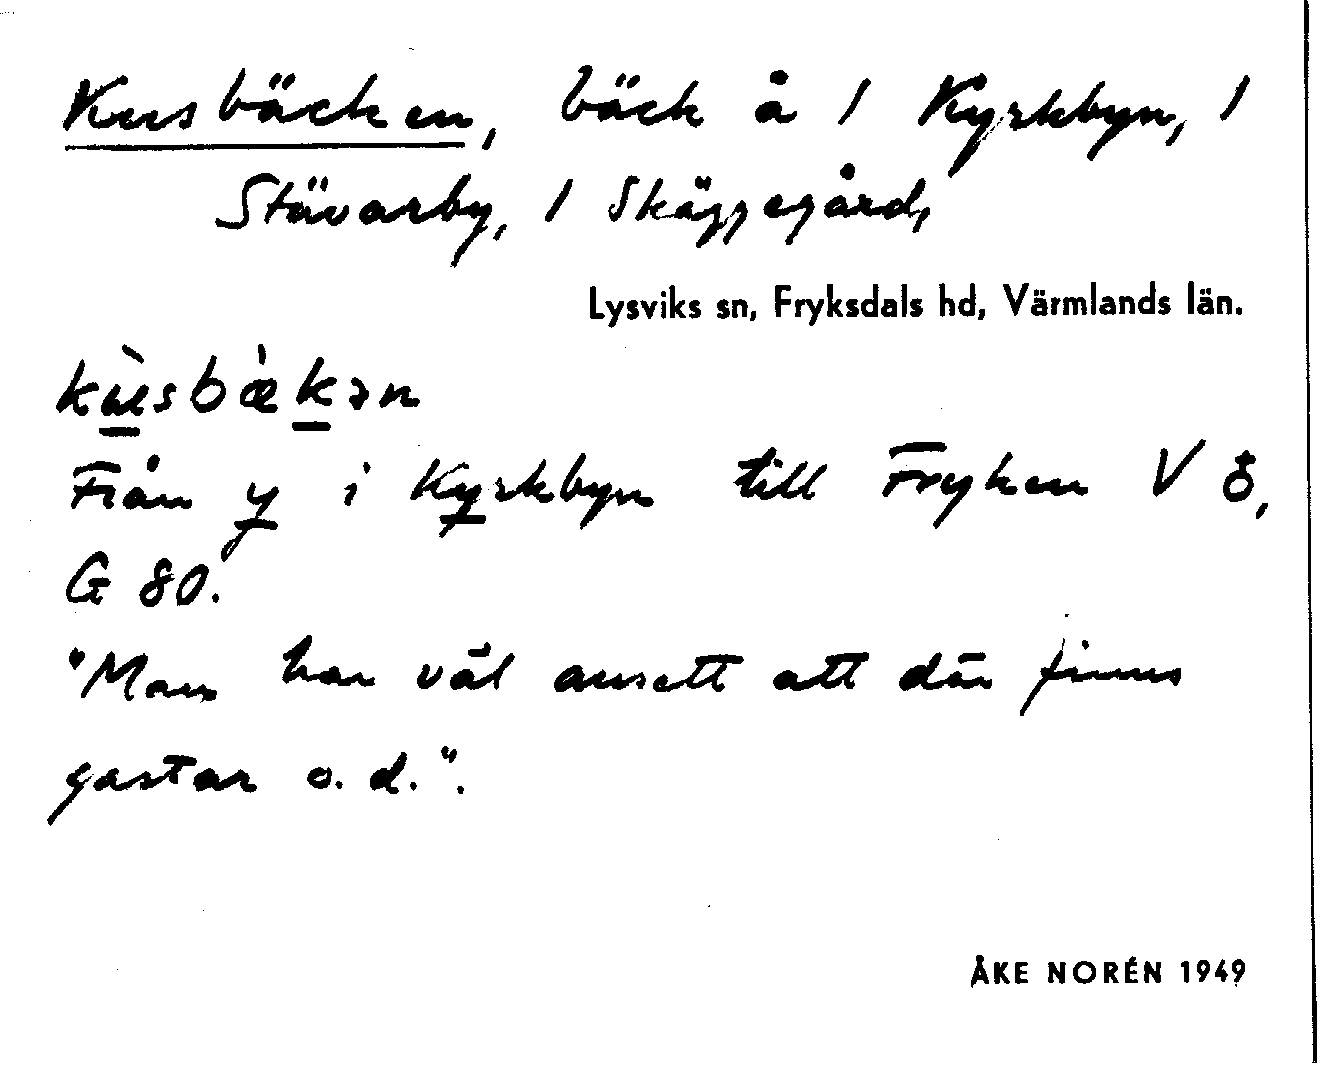 Kusbäcken, bäck å / Kyrkbyn, /
Stävarby, / Skäggegård,
Lysviks sn, Fryksdals hd, Värmlands län.
kùsbæ̀kən
Från y i Kyrkbyn till Fryken V Ö,
G 80.
"Man har väl ansett att där finns
gastar o. d.".
ÅKE NORÉN 1949